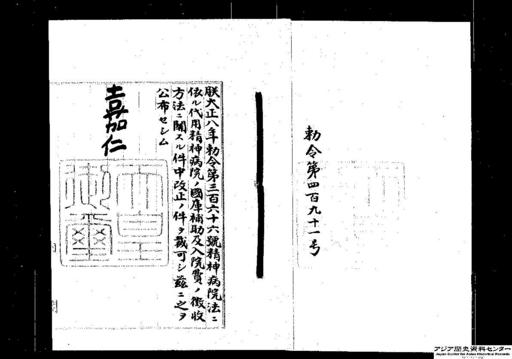 勅令第四百九十一号
朕大正八年勅令第三百六十六號精神病院法ニ
依ル代用精神病院ノ國庫補助及入院費ノ徴收
方法ニ關スル件中改正ノ件ヲ裁可シ茲ニ之ヲ
公布セシム
嘉仁
天皇
御璽
アジア歴史資料センター
Japan Center for Asian Historical Records